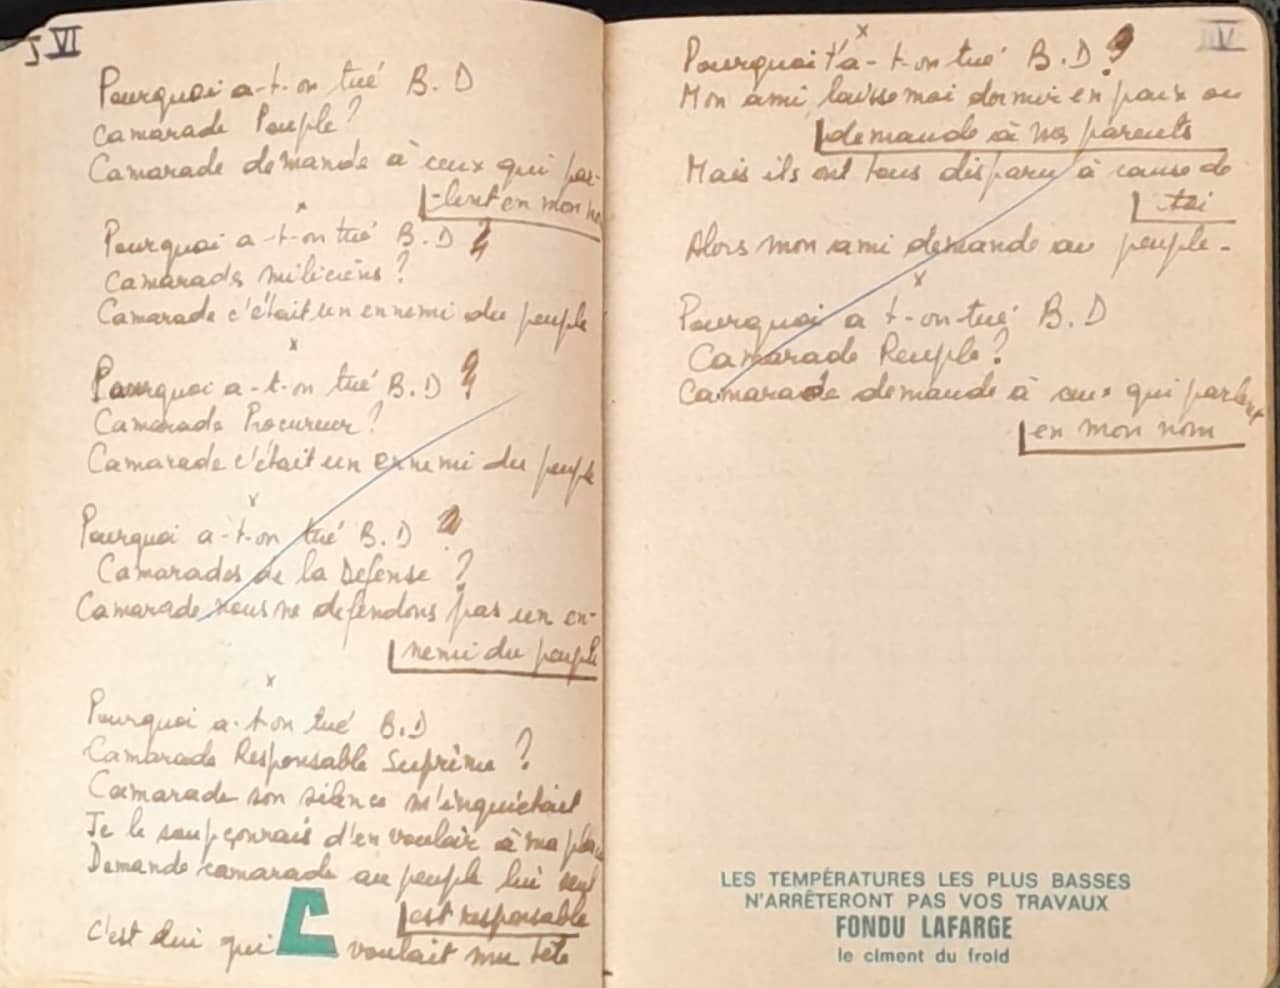 5 VI
Pourquoi a-t-on tué B.D
Camarade Peuple ?
Camarade demande à ceux qui par-
-lent en mon
x
Pourquoi a-t-on tué B.D ?
Camarades miliciens ?
Camarade c'était un ennemi du peuple
x
Pourquoi a-t-on tué B.D ?
Camarade Procureur ?
Camarade c'était un ennemi du peuple
x
Pourquoi a-t-on tué B.D ?
Camarades de la Défense ?
Camarade nous ne défendons pas un en-
nemi du peuple
x
Pourquoi a-t-on tué B.D
Camarade Responsable Suprême ?
Camarade son silence m'inquiétait
Je le soupçonnais d'en vouloir à ma place
Demande camarade au peuple lui seul
est responsable
C'est lui qui voulait ma tête
IV
x
Pourquoi t'a-t-on tué B.D ?
Mon ami laisse moi dormir en paix ou
demande à nos parents
Mais ils ont tous disparu à cause de
toi
Alors mon ami demande au peuple-
x
Pourquoi a t-on-tué B.D
Camarade Peuple ?
Camarade demande à ceux qui parlent
en mon nom
LES TEMPÉRATURES LES PLUS BASSES
N'ARRÊTERONT PAS VOS TRAVAUX
FONDU LAFARGE
le ciment du froid